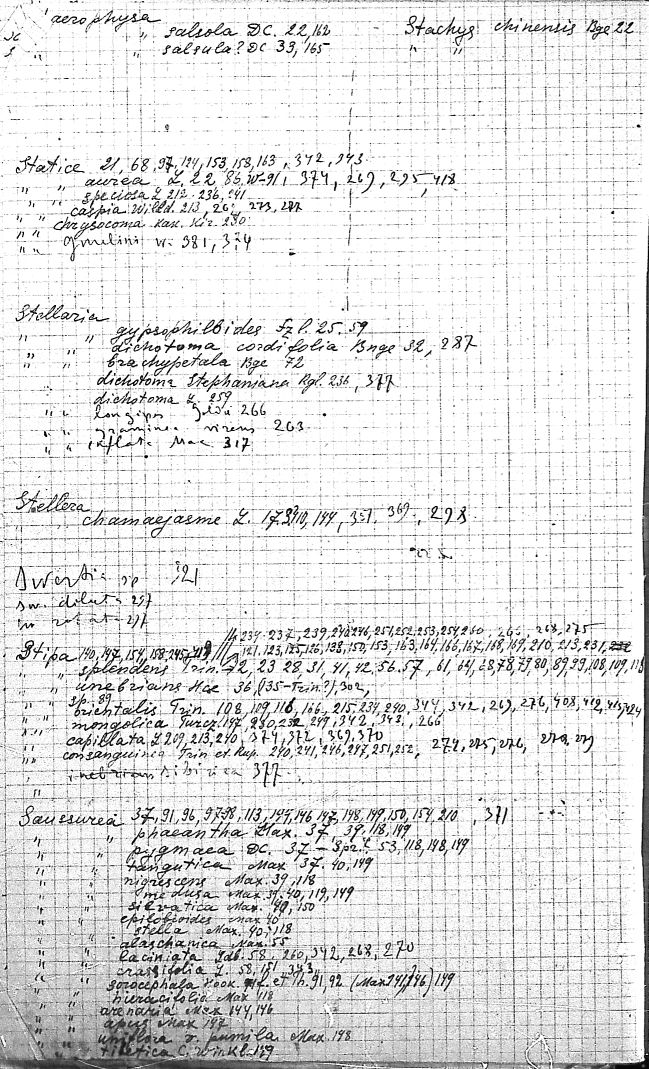 aerophysa
" salsola DC. 22, 162 Stachys chinensis Bge 22
" salsula? DC 39, 165 " "
Statice 21, 68, 97, 124, 153, 158, 163, 342, 343
" " aurea L, 22, 85, 374, 269, 295, 418
" " speciosa L 212, 236, 241
" " caspia Willd. 213, 273, 277
" " chrysocoma Kar. Kir. 280
" " Gmelini W. 381, 374
Stellaria
" " gypsophiloides Fzl. 25. 59
" " dichotoma cordifolia Bnge 32, 287
" " brachypetala Bge 72
dichotoma Stephaniana Rgl. 236, 377
dichotoma L. 259
" " longipes 266
" " graminea virens 263
" " inflata Max 317
Stellera
chamaejasme L. 144, 351, 369, 298
Swertia sp 121
Sw. diluta 297
Sw rotat 297
234-237, 239, 240, 246, 251, 252, 253, 254, 260, 268, 275
Stipa 140, 147, 154, 158, 121, 123, 125, 126, 138, 150, 153, 163, 164, 166, 167, 168, 169, 210, 213, 231
" splendens Trin. 23 28. 31, 41, 42. 56. 57, 61, 64, 80, 89, 99, 108, 109, 118
" inebrians Hce 36 (135-Trin?), 302,
sp. 89
" orientalis Trin. 108, 109, 116, 166, 215, 234, 240, 344, 342, 269, 276, 408, 412,
" mongolica Turcz. 147, 230, 232, 249, 342, 266
" capillata L 209, 213, 240, 374, 372, 369, 370
" consanguinea Trin et Rup. 240, 241, 246, 247, 251, 252, 274, 275, 276,
" inebrians sibirica 377
Saussurea 37, 91, 96, 97, 98, 113, 144, 146, 147, 148, 149, 150, 154, 210, 371
" " phaeantha Max. 37, 39, 118, 149
" " pygmaea DC. 37 - 53, 118, 148, 149
" " tangutica Max 37. 40, 149
" " nigrescens Max. 39, 118
" " medusa Max. 40, 119, 149
" " silvatica Max. 150
" " epilobioides Max 40
" " stella Max. 40, 118
" " alaschanica Max. 55
" " laciniata Ldb. 58, 260, 342, 268, 270
" " crassifolia L. 58, 151
" " gorocephala Hook. et Th. 91, 92 (Max 241, 246) 149
" " hieracifolia Max 118
" " arenaria Max 144, 146
" " apus Max 147
" " uniflora v. pumila Max. 148
" " tibetica C. Winkl. 149